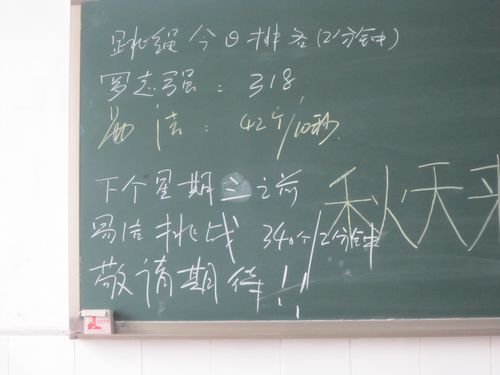 跳绳今日排名(2分钟)
罗志强：318
易洁：42个/10秒
下个星期三之前
易洁挑战 340个/2分钟
敬请期待!!
秋天来